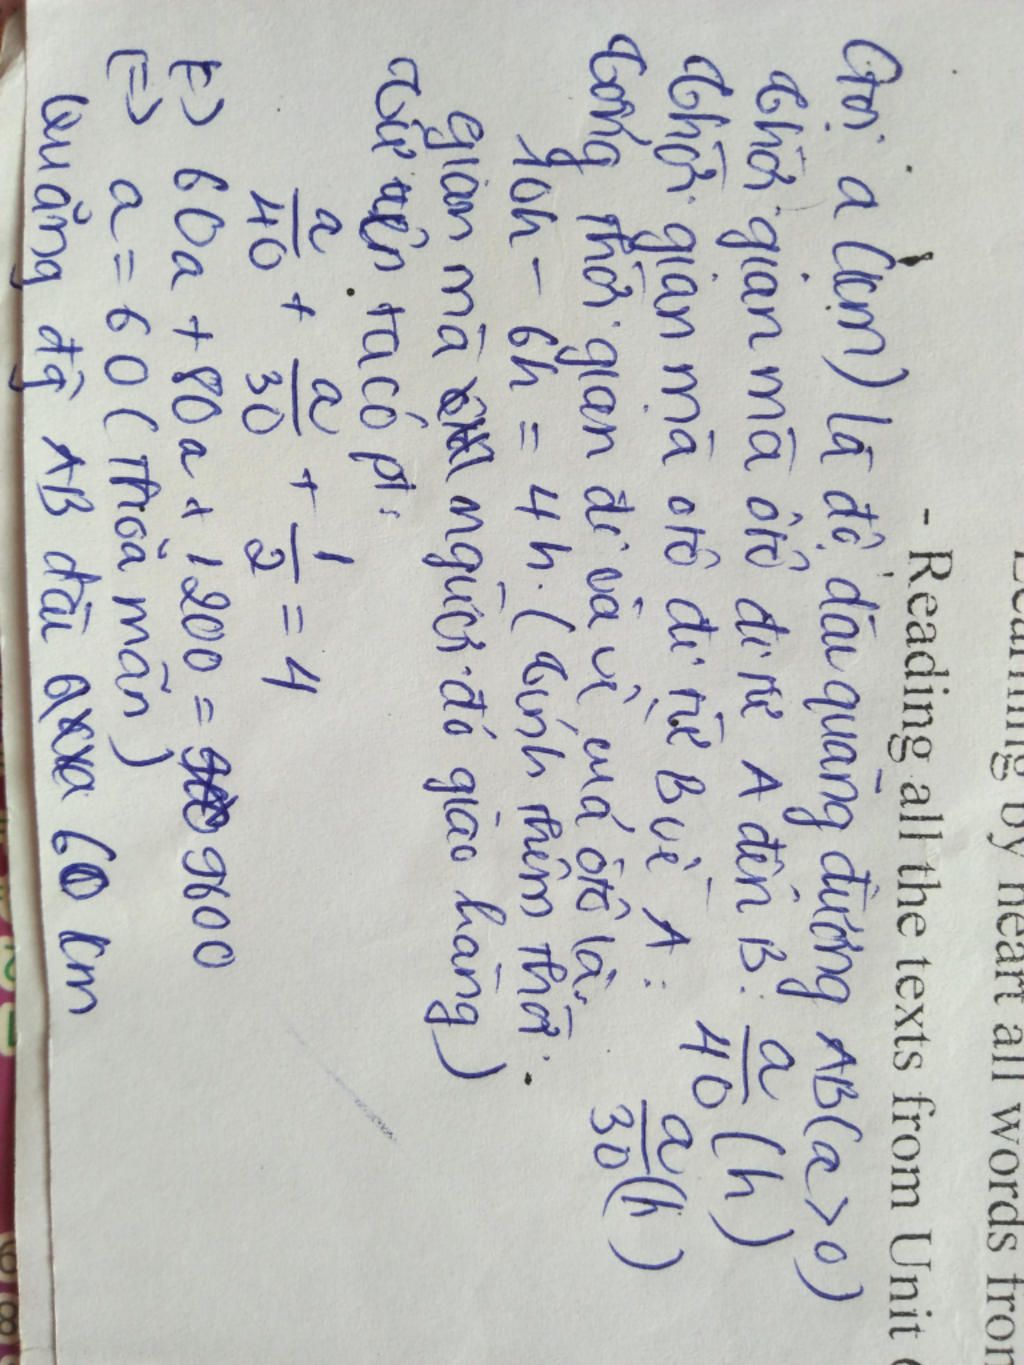 Learning by heart all words from
- Reading all the texts from Unit
Gọi a (km) là độ dài quãng đường AB (a > 0)
Thời gian mà ôtô đi từ A đến B: a/40 (h)
Thời gian mà ôtô đi từ B về A: a/30 (h)
Tổng thời gian đi và về của ôtô là
10h - 6h = 4h. (Tính thêm thời
gian mà người đó giao hàng)
Từ trên ta có pt:
a/40 + a/30 + 1/2 = 4
(=) 60a + 80a + 1200 = 9600
(=) a = 60 (thoả mãn)
Quãng đg AB dài 60 km